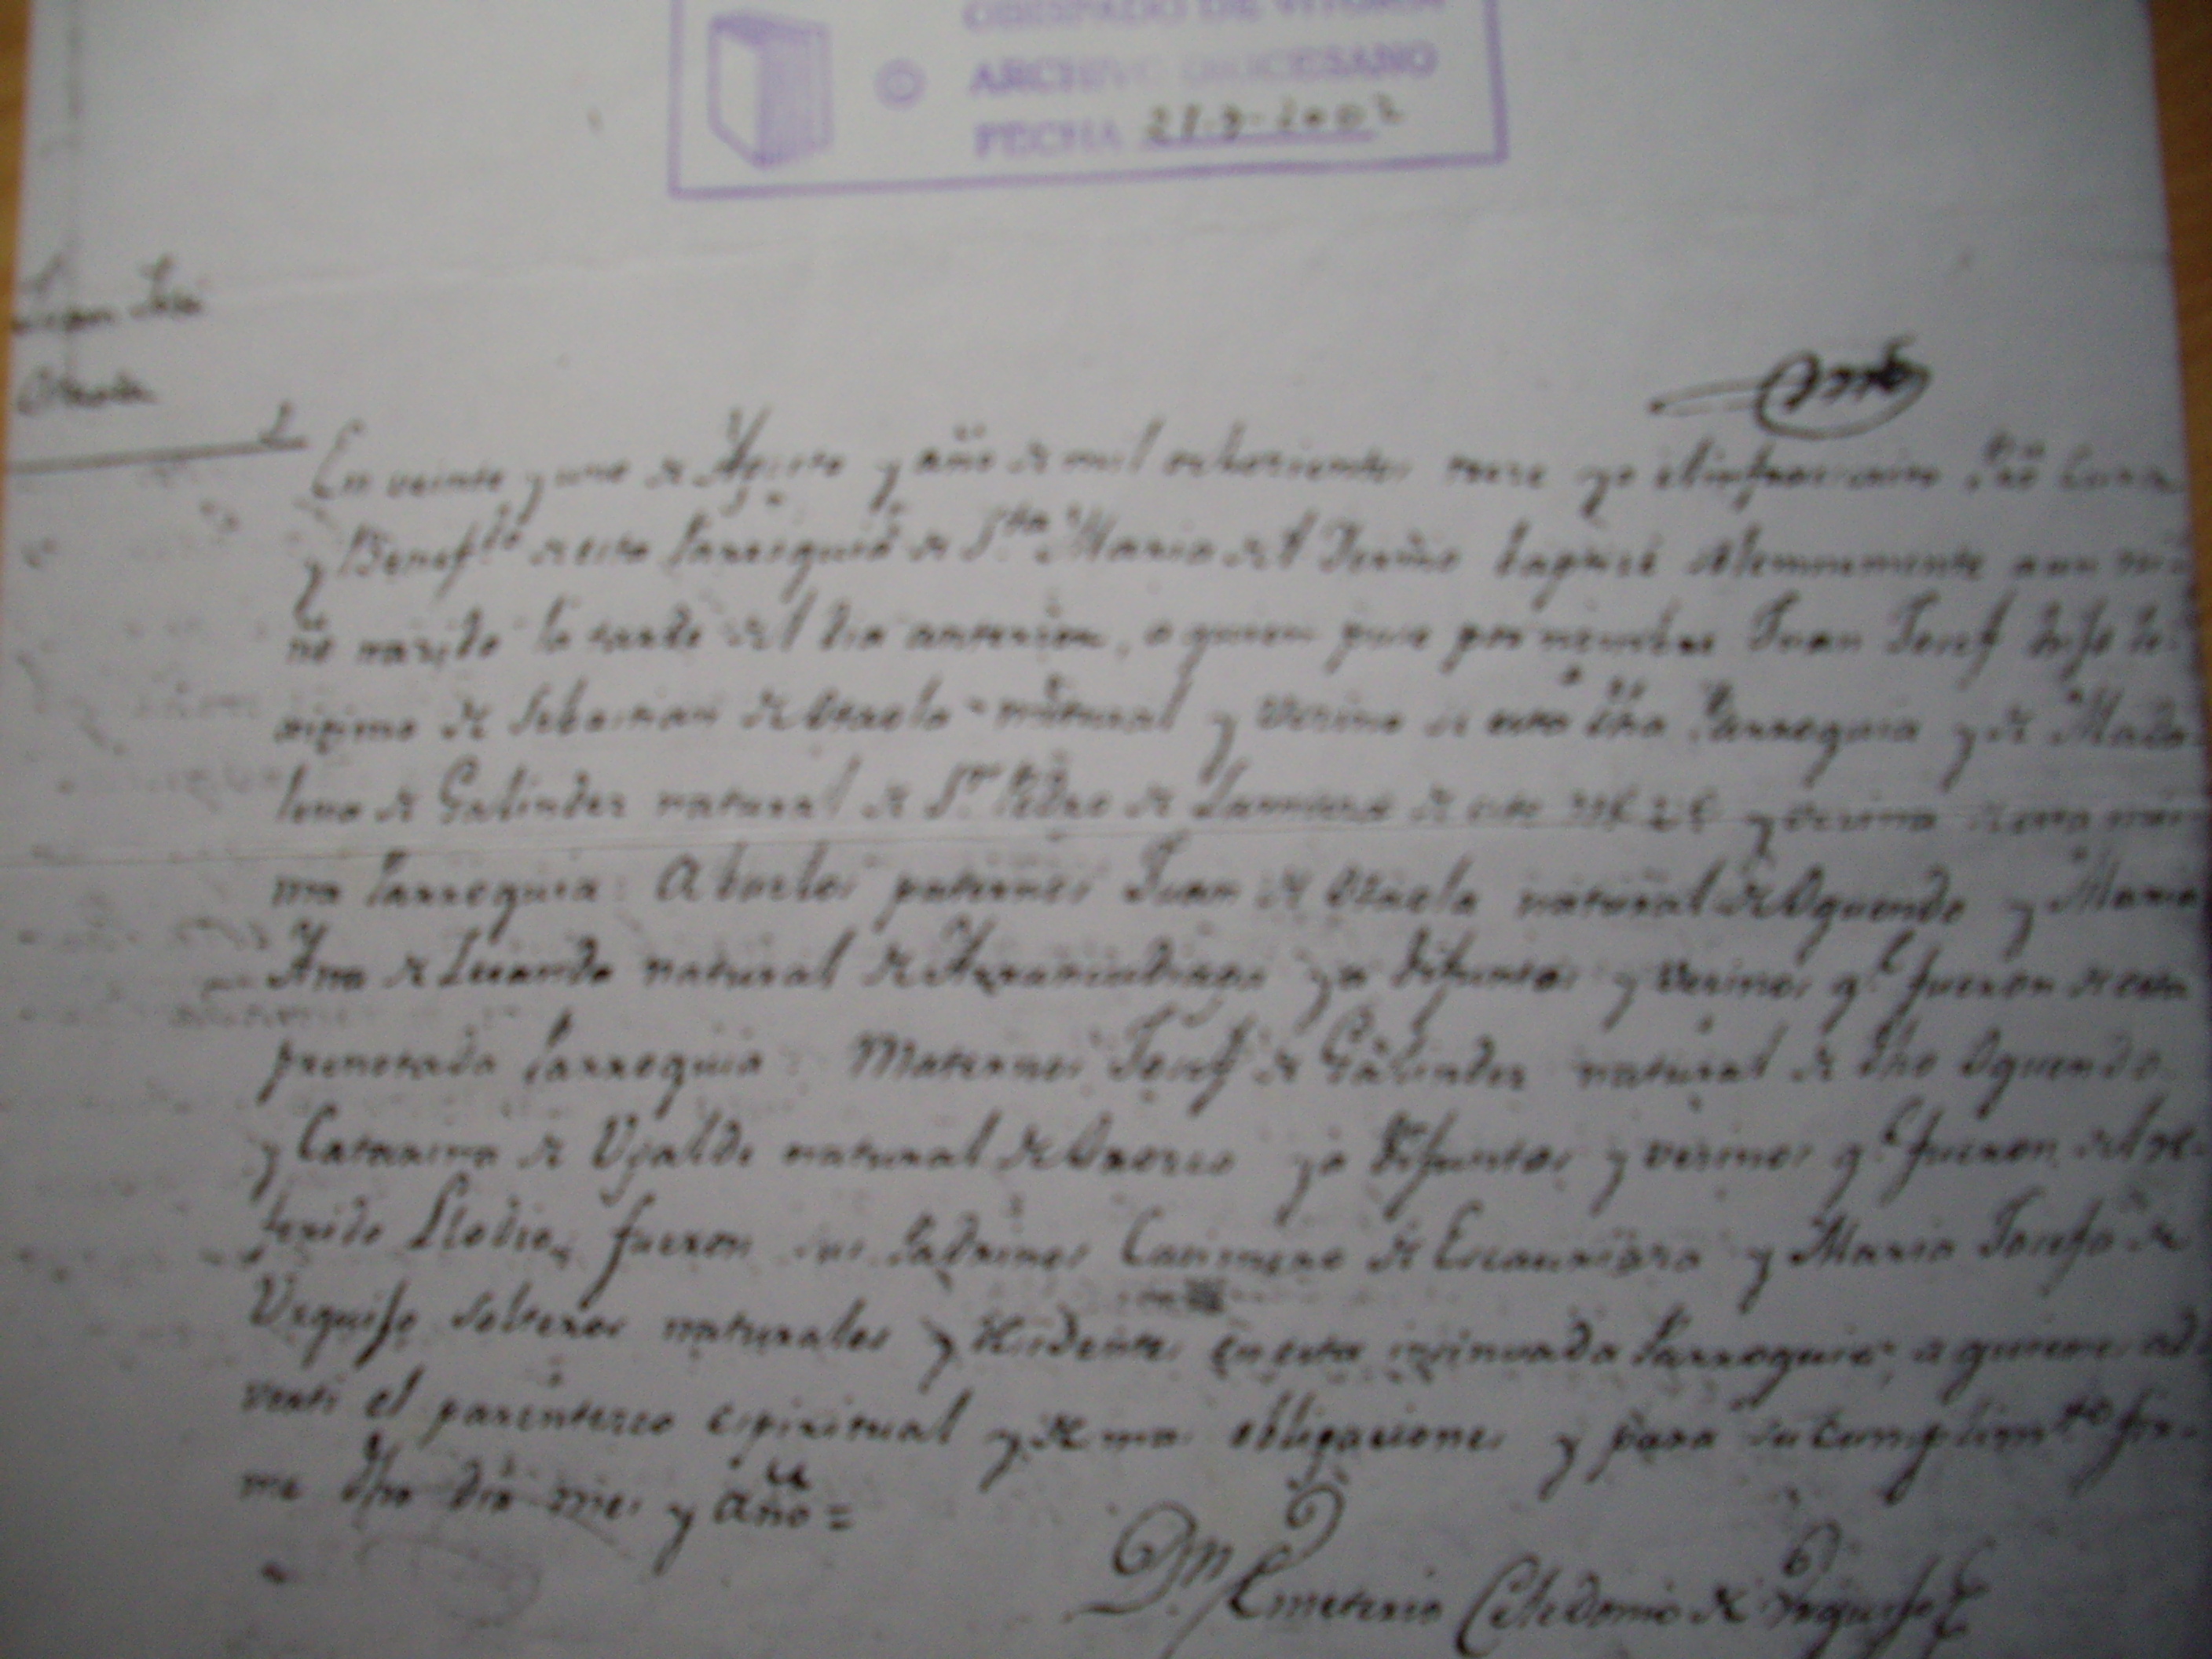 OBISPADO DE VITORIA
ARCHIVO DIOCESANO
FECHA 21-9-2007
Juan José
Otaola
En veinte y uno de Agosto y año de mil ochocientos trece yo el infrascripto Cura
y Benef.do de esta Parroquia de S.ta Maria del Yermo baptizé solemnemente a un ni-
ño nazido la tarde del dia anterior, a quien puse por nombre Juan Josef hijo le-
gitimo de Sebastian de Otaola natural y vezino de esta dha Parroquia y de Mada-
lena de Galindez natural de S.n Pedro de Lamuza de este y vezina de esta mis-
ma Parroquia: Abuelos paternos Juan de Otaola natural de Oquendo y Maria
Ana de Luiando natural de Arrancudiaga ya difuntos y vezinos q.e fueron de esta
prenotada Parroquia: Maternos Josef de Galindez natural de dho Oquendo
y Catarina de Ugalde natural de Orozco ya difuntos y vezinos q.e fueron del re-
ferido Llodio, fueron sus Padrinos Casimero de Escauriaza y Maria Josefa de
Urquijo solteros naturales y residentes en esta insinuada Parroquia a quienes ad-
verti el parentesco espiritual y demas obligaciones y para su cumplim.to fir-
me dho dia mes y año =
D.n Emeterio Celedonio de Urquijo